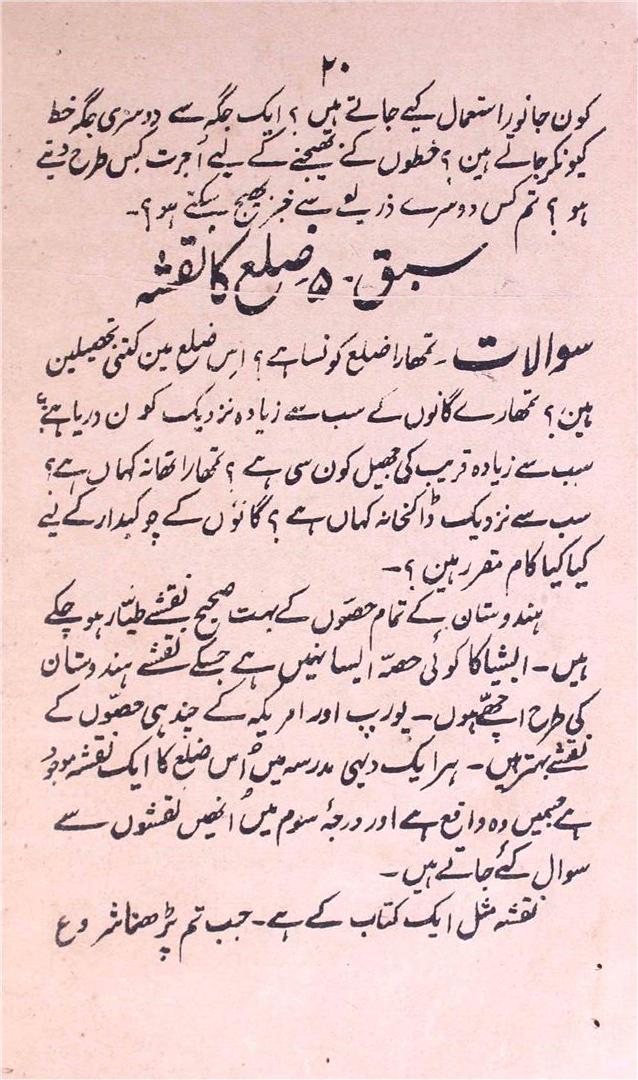 ۲۰
کون جانور استعمال کیے جاتے ہیں ؟ ایک جگہ سے دوسری جگہ خط
کیونکر جاتے ہین ؟ خطوں کے بھیجنے کے لیے اُجرت کس طرح دیتے
ہو ؟ تم کس دوسرے ذریعے سے خبر بھیج سکتے ہو ؟۔
سبق ۔ ۵ ضلع کا نقشہ
سوالات ۔ تمھارا ضلع کونسا ہے ؟ اِس ضلع مین کتنی تحصیلین
ہین ؟ تمھارے گانوں کے سب سے زیادہ نزدیک کون دریا ہے ؟
سب سے زیادہ قریب کی جھیل کون سی ہے ؟ تمھارا تھانہ کہاں ہے ؟
سب سے نزدیک ڈاکخانہ کہاں ہے ؟ گانوٗں کے چوکیدار کے لیے
کیا کیا کام مقرر ہین ؟۔
ہندوستان کے تمام حصّوں کے بہت صحیح نقشے طیّار ہو چکے
ہیں ۔ ایشیا کا کوئی حصّہ ایسا نہیں ہے جسکے نقشے ہندوستان
کی طرح اچھّے ہوں ۔ یورپ اور امریکہ کے چند ہی حصّوں کے
نقشے بہتر ہیں ۔ ہر ایک دیہی مدرسہ میں اُس ضلع کا ایک نقشہ موجود
ہے جسمیں وہ واقع ہے اور درجۂ سوم میں اُنھیں نقشوں سے
سوال کئے جاتے ہیں ۔
نقشہ مثل ایک کتاب کے ہے ۔ جب تم پڑھنا شروع